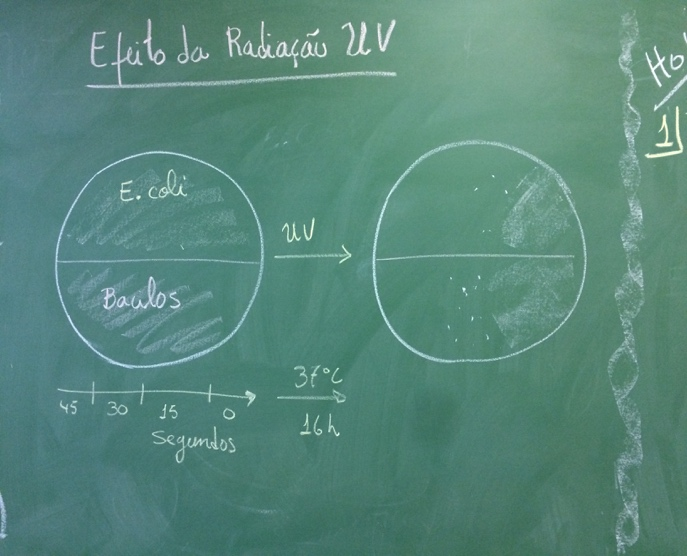 Efeito da Radiação UV
E. coli
Bacilos
UV
45 30 15 0
Segundos
37°C
16h
Ho
1]